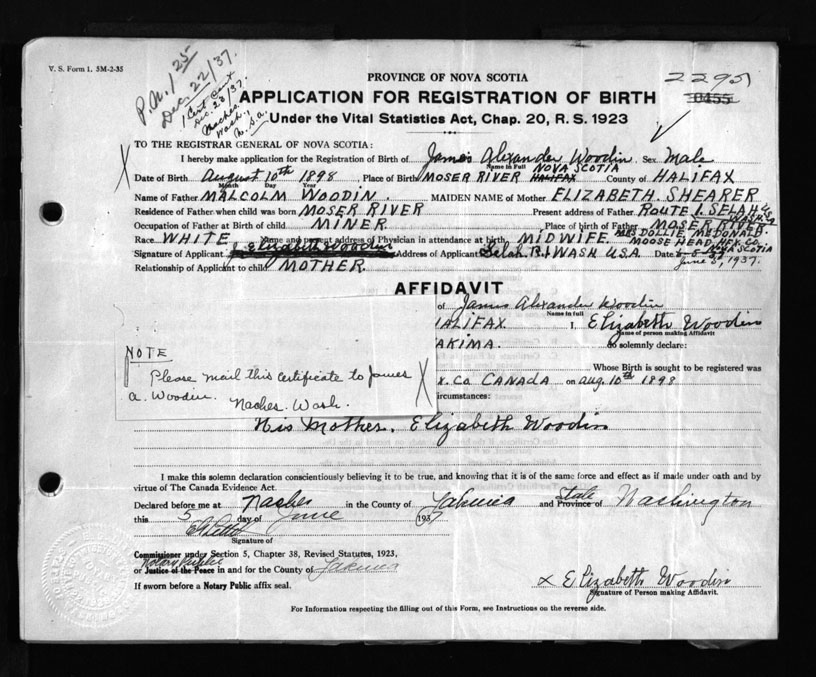 V. S. Form 1. 3M-2-35
P.N./25
Dec. 22/37.
1 Cert sent
Dec. 28/37.
Naches.
Wash.,
U.S.a.
2295
0455
PROVINCE OF NOVA SCOTIA
APPLICATION FOR REGISTRATION OF BIRTH
Under the Vital Statistics Act, Chap. 20, R. S. 1923
TO THE REGISTRAR GENERAL OF NOVA SCOTIA:
I hereby make application for the Registration of Birth of James Alexander Woodin Sex Male
Name in Full
Date of Birth August 10th 1898 Place of Birth MOSER RIVER HALIFAX NOVA SCOTIA County of HALIFAX
Month Day Year
Name of Father MALCOLM WOODIN. MAIDEN NAME of Mother ELIZABETH. SHEARER
Residence of Father when child was born MOSER RIVER Present address of Father ROUTE 1. SELAH WASH
Occupation of Father at Birth of child MINER Place of birth of Father MOSER RIVER
Race WHITE Name and present address of Physician in attendance at birth MIDWIFE. MRS DOLLIE MCDONALD. MOOSE HEAD, HFX. CO. NOVA SCOTIA
Signature of Applicant Elizabeth Woodin Address of Applicant Selah. R.1 WASH U.S.A. Date June 5, 1937.
Relationship of Applicant to child MOTHER.
AFFIDAVIT
of James Alexander Woodin
Name in full
HALIFAX I, Elizabeth Woodin
Name of person making Affidavit
AKIMA. do solemnly declare:
Whose Birth is sought to be registered was
X. Co CANADA on aug. 10th 1898
ircumstances:
NOTE
Please mail this certificate to James
a. Woodin. Naches. Wash.
His Mother. Elizabeth Woodin
I make this solemn declaration conscientiously believing it to be true, and knowing that it is of the same force and effect as if made under oath and by
virtue of The Canada Evidence Act.
Declared before me at Naches in the County of Yakima and State Province of Washington
this 5 day of June 1937
Signature of
Commissioner under Section 5, Chapter 38, Revised Statutes, 1923,
Notary Public
or Justice of the Peace in and for the County of Yakima
If sworn before a Notary Public affix seal.
x Elizabeth Woodin
Signature of Person making Affidavit.
For Information respecting the filling out of this Form, see Instructions on the reverse side.